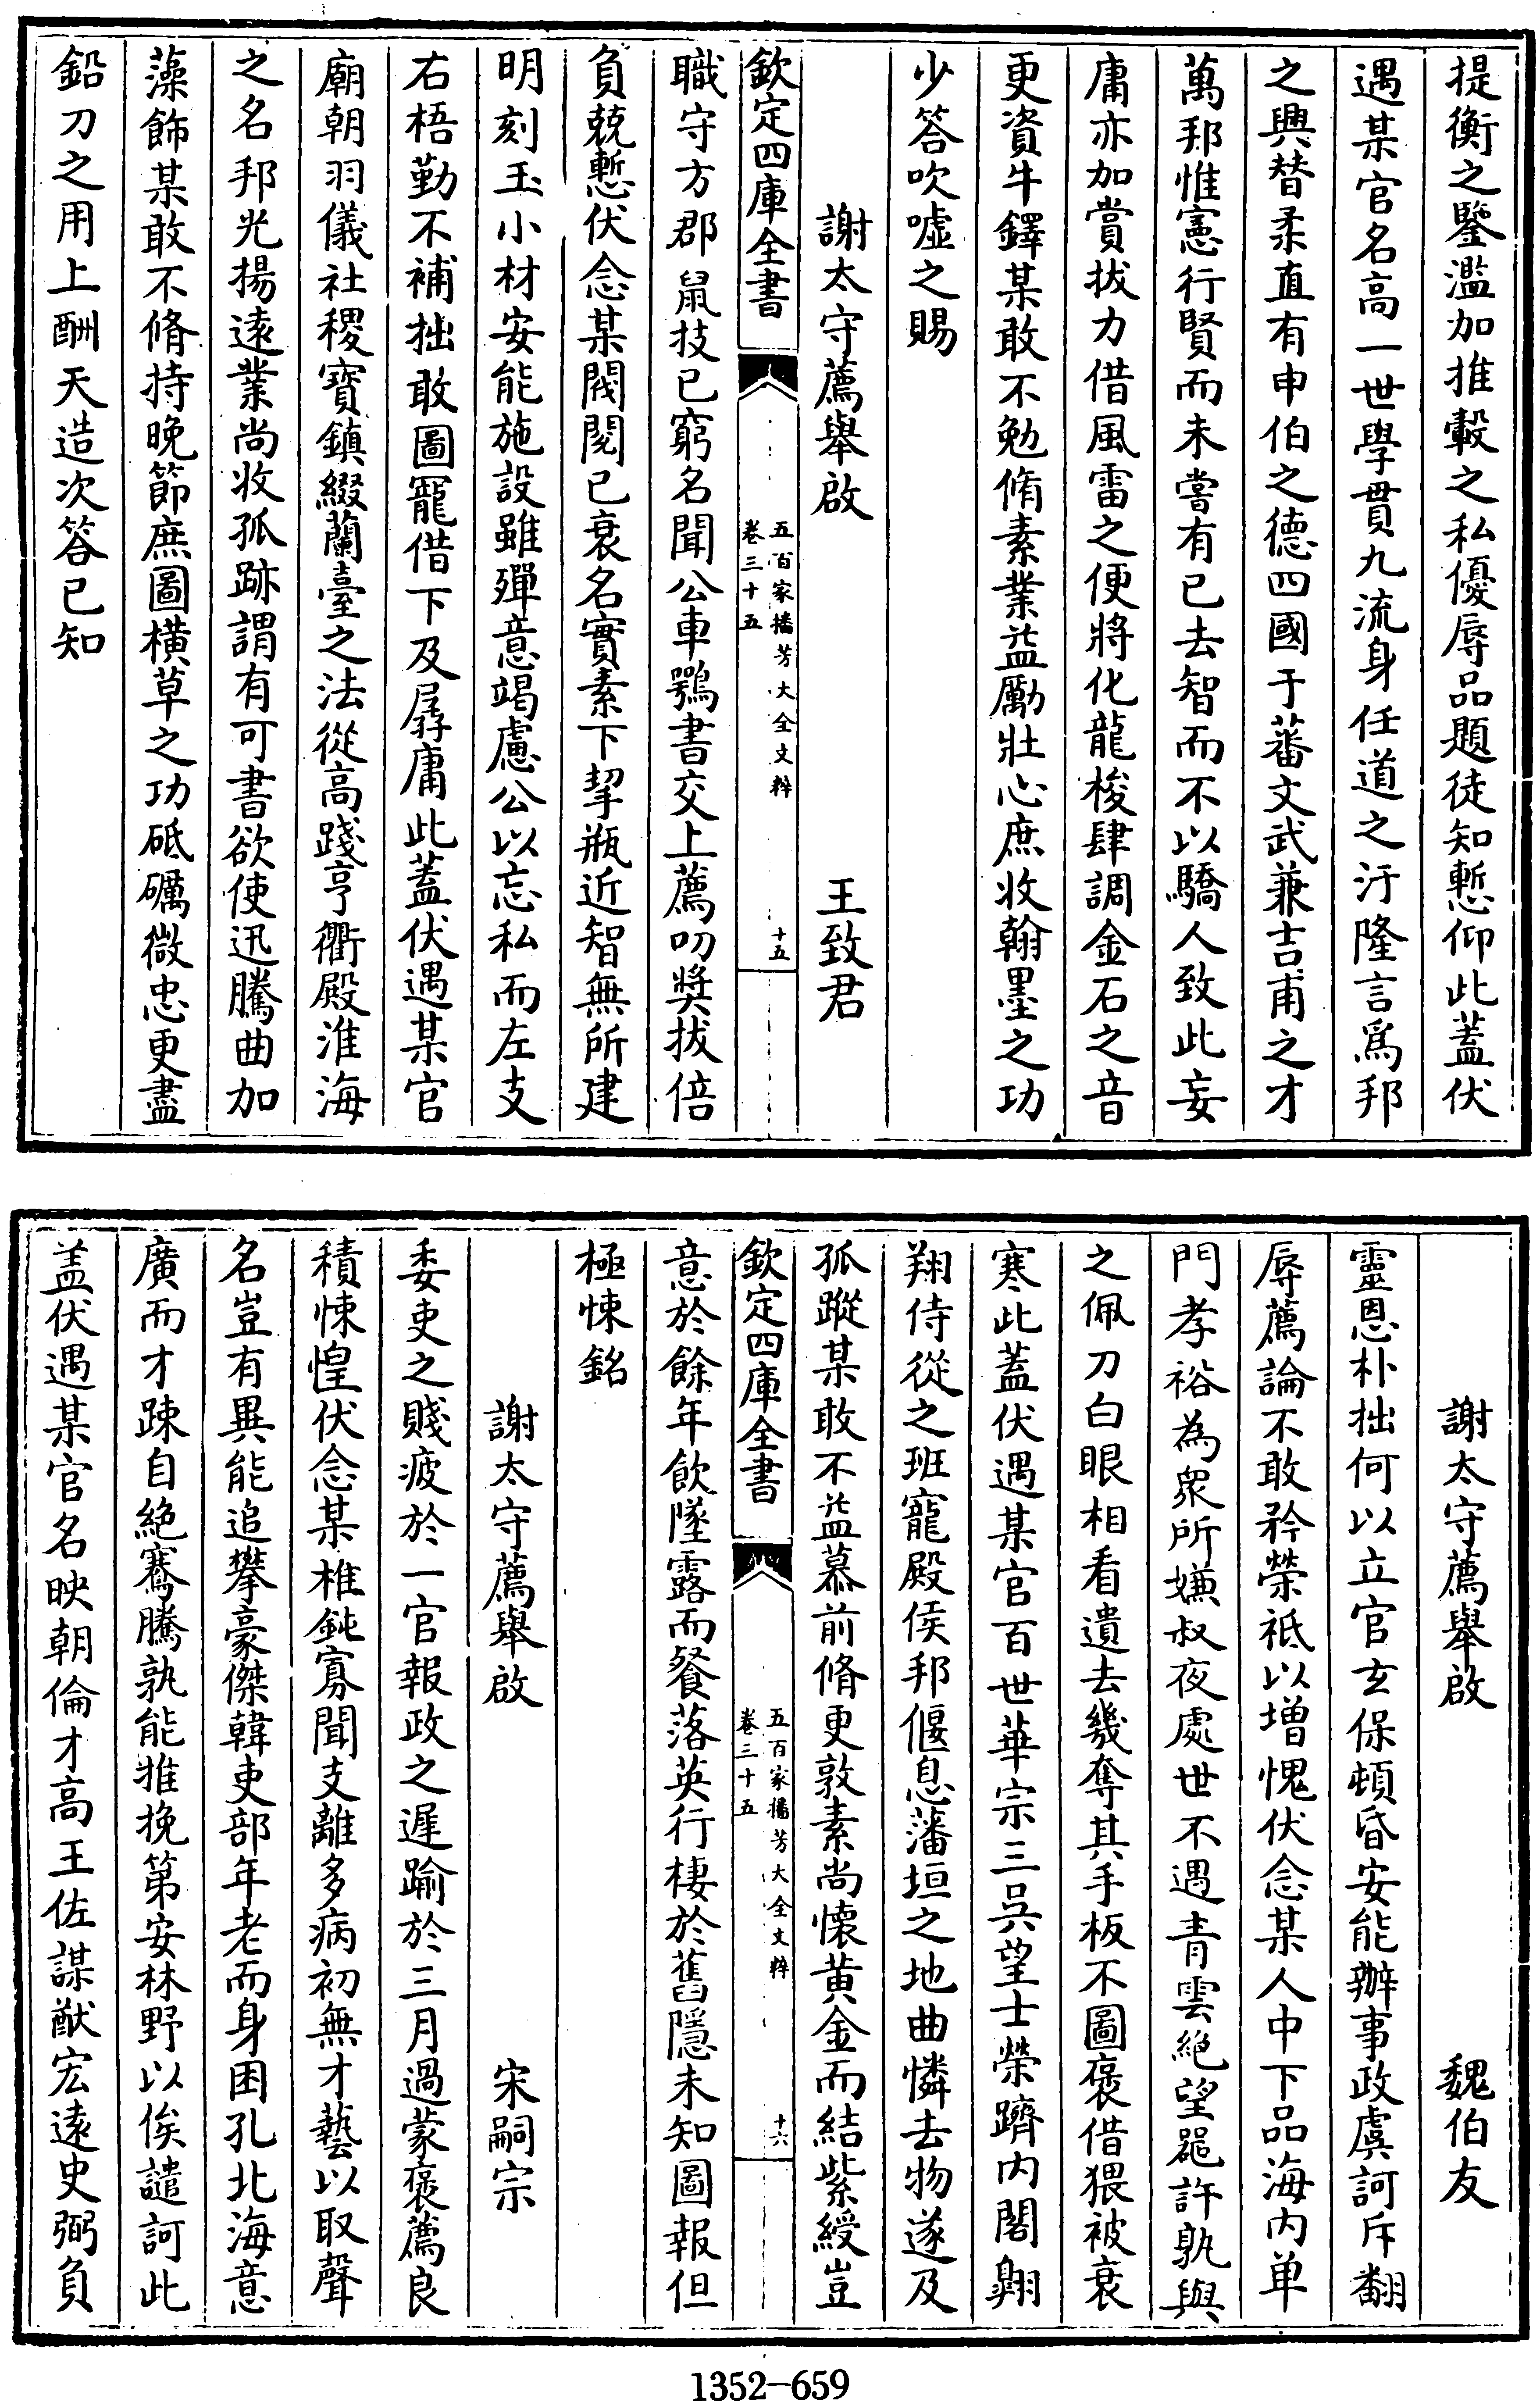 提衡之鑒濫加推轂之私優辱品題徒知慙仰此蓋伏
遇某官名高一世學貫九流身任道之汙隆言爲邦
之興替柔直有申伯之德四國于蕃文武兼吉甫之才
萬邦惟憲行賢而未嘗有已去智而不以驕人致此妄
庸亦加賞拔力借風雷之便將化龍梭肆調金石之音
更資牛鐸某敢不勉脩素業益勵壯心庶收翰墨之功
少答吹噓之賜
謝太守薦舉啟　王致君
欽定四庫全書
五百家播芳大全文粹
卷三十五
十五
職守方郡鼠技已窮名聞公車鶚書交上薦叨奬拔倍
負兢慙伏念某閥閱已衰名實素下挈瓶近智無所建
明刻玉小材安能施設雖殫意竭慮公以忘私而左支
右梧勤不補拙敢圖寵借下及孱庸此蓋伏遇某官
廟朝羽儀社稷寳鎮綴蘭臺之法從高踐亨衢殿淮海
之名邦光揚遠業尚收孤跡謂有可書欲使迅騰曲加
藻飾某敢不脩持晚節庶圖橫草之功砥礪微忠更盡
鉛刀之用上酬天造次答已知
謝太守薦舉啟　魏伯友
靈恩朴拙何以立官玄保頓昏安能辦事政虞訶斥翻
辱薦論不敢矜榮祗以增愧伏念某人中下品海內单
門孝裕為衆所嫌叔夜處世不遇青雲絶望罷許孰與
之佩刀白眼相看遺去幾奪其手板不圖褒借猥被衰
寒此蓋伏遇某官百世華宗三吳望士榮躋內閣翺
翔侍從之班寵殿侯邦偃息藩垣之地曲憐去物遂及
孤蹤某敢不益慕前脩更敦素尚懷黄金而結紫綬豈
欽定四庫全書
五百家播芳大全文粹
卷三十五
十六
意於餘年飲墜露而餐落英行棲於舊隱未知圖報但
極悚銘
謝太守薦舉啟　宋嗣宗
委吏之賤疲於一官報政之遲踰於三月過蒙褒薦良
積悚惶伏念某椎鈍寡聞支離多病初無才藝以取聲
名豈有異能追攀豪傑韓吏部年老而身困孔北海意
廣而才踈自絶騫騰孰能推挽第安林野以俟譴訶此
盖伏遇某官名映朝倫才高王佐謀猷宏遠史弼負
1352—659